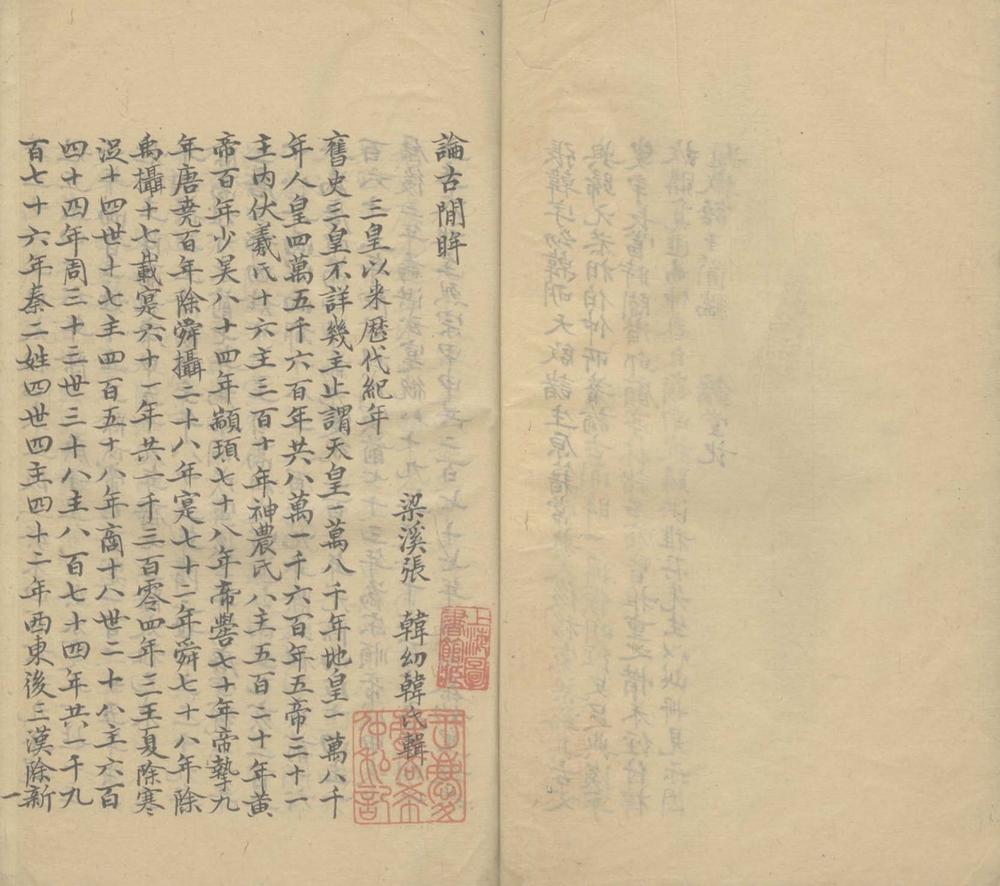 論古閒眸
梁溪張　韓幼韓氏輯
三皇以來歷代紀年
舊史三皇不詳幾主止謂天皇一萬八千年地皇一萬八千
年人皇四萬五千六百年共八萬一千六百年五帝三十一
主內伏羲氏十六主三百十年神農氏八主五百二十年黃
帝百年少昊八十四年顓頊七十八年帝嚳七十年帝摯九
年唐堯百年除舜攝二十八年寔七十二年舜七十八年除
禹攝十七載寔六十一年共一千三百零四年三王夏除寒
浞十四世十七主四百五十八年商十八世二十八主六百
四十四年周三十三世三十八主八百七十四年共一千九
百七十六年秦二姓四世四主四十二年西東後三漢除新
一
上海圖
書館藏